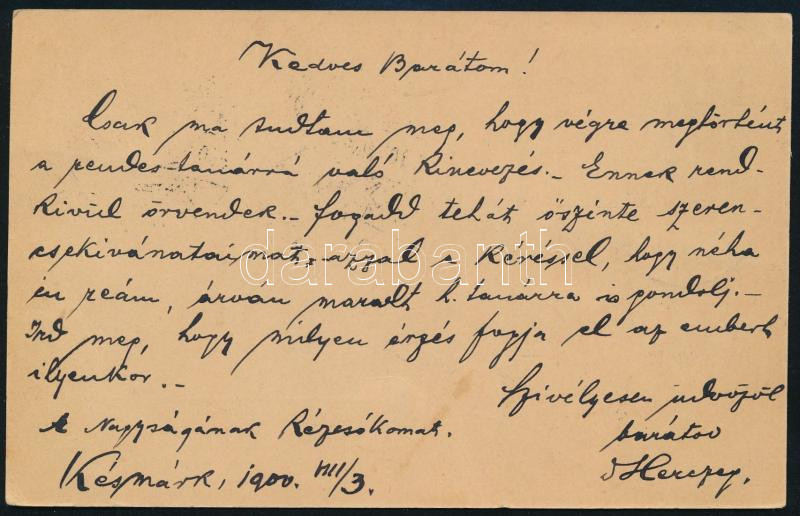 Kedves Barátom!
Csak ma tudtam meg, hogy végre megtörtént
a rendes tanárrá való kinevezés.- Ennek rend-
kivül örvendek.- Fogadd tehát őszinte szeren-
csekivánataimat, azzal a kéréssel, hogy néha
én reám, árván maradt h. tanárra is gondolj.-
Ird meg, hogy milyen érzés fogja el az embert
ilyenkor.-
Szivélyesen üdvözöl
A Nagyságának kézcsókomat.
barátod
Késmárk, 1900. VIII/3.
Herczeg.
darabanth